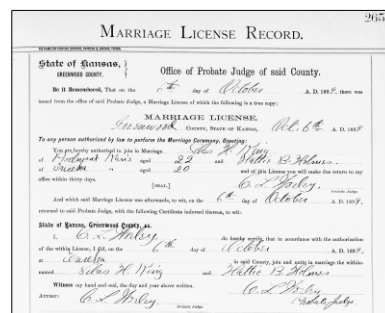 265
MARRIAGE LICENSE RECORD.
State of Kansas,
GREENWOOD COUNTY.
Office of Probate Judge of said County.
Be it Remembered, That on the 6th day of October A. D. 1884, there was
issued from the office of said Probate Judge, a Marriage License of which the following is a true copy:
MARRIAGE LICENSE.
Greenwood COUNTY, STATE OF KANSAS, Oct. 6th 1884
To any person authorized by law to perform the Marriage Ceremony, Greeting:
You are hereby authorized to join in Marriage Silas H King
of aged 22 and Hattie B Holmes
of Eureka " aged 20 and of this License you will make due return to my
office within thirty days.
[SEAL.] C L
Probate Judge.
And which said Marriage License was afterwards, to wit, on the 6th day of October A. D. 1884,
returned to said Probate Judge, with the following Certificate indorsed thereon, to wit:
State of Kansas, Greenwood County, ss.
I, C. L. do hereby certify, that in accordance with the authorization
of the within License, I did, on the 6th day of October A. D. 1884
at Eureka in said County, join and unite in marriage the within-
named Silas H King and Hattie B Holmes
Witness my hand and seal, the day and year above written.
C L
ATTEST: C L Probate Judge.
Probate Judge.